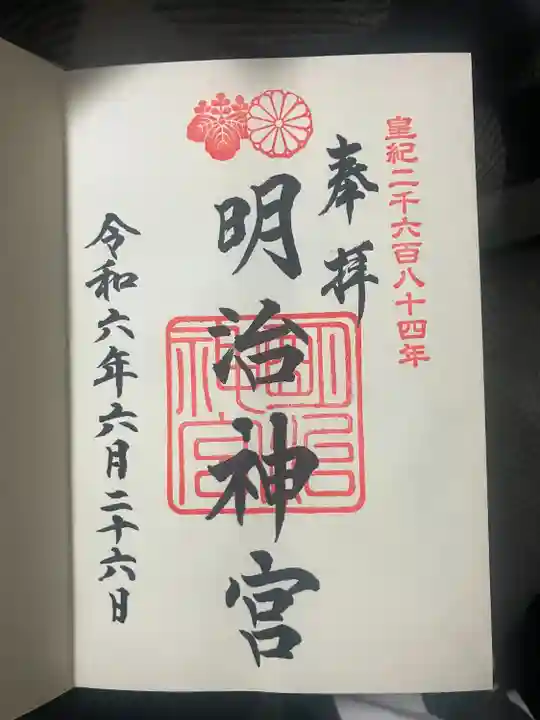 皇紀二千六百八十四年
奉拝
明治神宮
明治神宮
令和六年六月二十六日